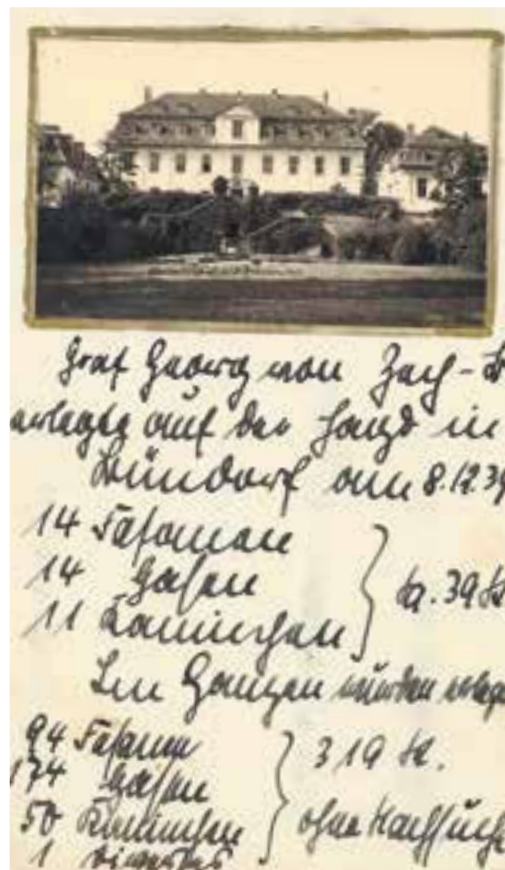 Graf Georg von Zech-B
erlegte auf der Jagd in
Bündorf am 8.12.39
14 Fasanen
14 Hasen
11 Kaninchen
Sa. 39 St
Im Ganzen wurden erleg
94 Fasanen
174 Hasen
50 Kaninchen
1
319 St.
ohne Nachsuche